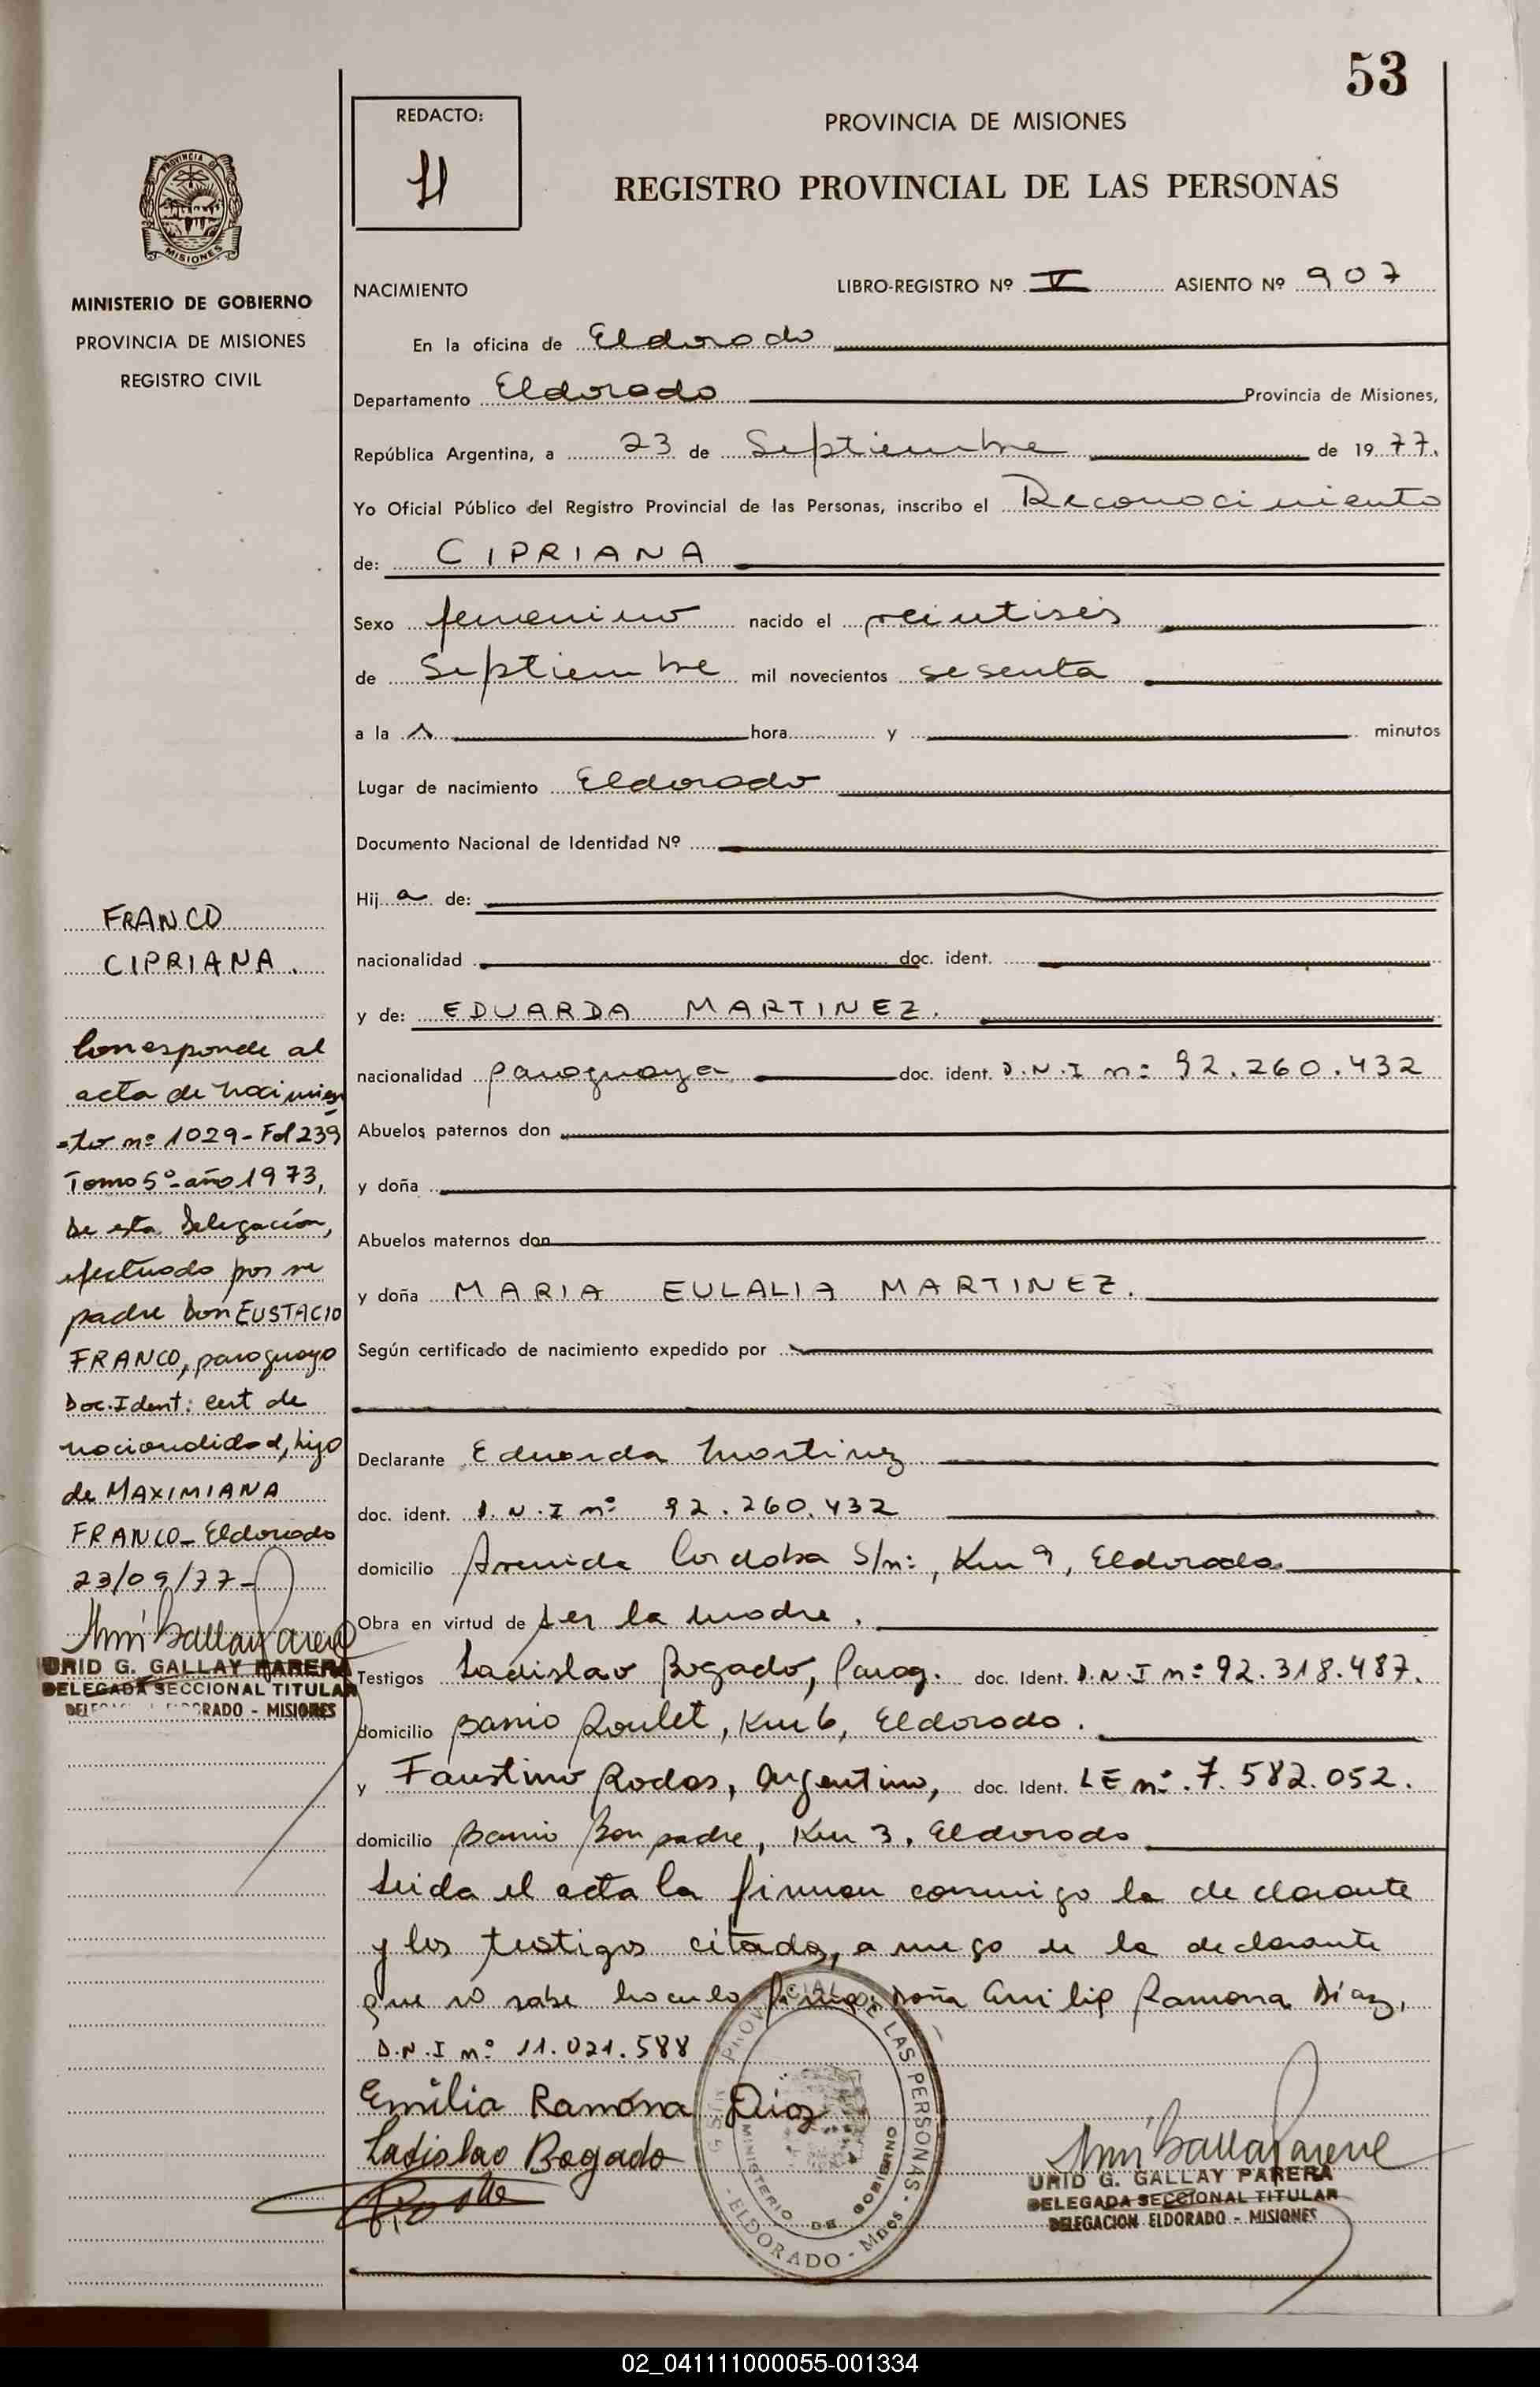 53
REDACTO:
PROVINCIA DE MISIONES
REGISTRO PROVINCIAL DE LAS PERSONAS
PROVINCIA DE
MISIONES
MINISTERIO DE GOBIERNO
PROVINCIA DE MISIONES
REGISTRO CIVIL
FRANCO
CIPRIANA.
Corresponde al
acta de nacimien
-to nº 1029-Fol 239
Tomo 5º-año 1973,
De esta Delegación,
efectuado por su
padre Don EUSTACIO
FRANCO, paraguayo
Doc. Ident: cert de
nacionalidad, hijo
de MAXIMIANA
FRANCO_ Eldorado
23/09/77-
URID G. GALLAY PARERA
DELEGADA SECCIONAL TITULAR
DELEGACION ELDORADO - MISIONES
NACIMIENTO LIBRO-REGISTRO Nº V ASIENTO Nº 907
En la oficina de Eldorado
Departamento Eldorado Provincia de Misiones,
República Argentina, a 23 de Septiembre de 1977.
Yo Oficial Público del Registro Provincial de las Personas, inscribo el Reconocimiento
de: CIPRIANA
Sexo femenino nacido el veintiseis
de Septiembre mil novecientos sesenta
a la s hora y minutos
Lugar de nacimiento Eldorado
Documento Nacional de Identidad Nº
Hij a de:
nacionalidad doc. ident.
y de: EDUARDA MARTINEZ.
nacionalidad paraguaya doc. ident. D.N.I nº 92.260.432
Abuelos paternos don
y doña
Abuelos maternos don
y doña MARIA EULALIA MARTINEZ.
Según certificado de nacimiento expedido por
Declarante Eduarda Martinez
doc. ident. D.N.I nº 92.260.432
domicilio Avenida Cordoba S/nº, Km 9, Eldorado.
Obra en virtud de ser la madre.
Testigos Ladislao Bogado, Parag. doc. Ident. D.N.I nº 92.318.487.
domicilio Barrio Roulet, Km 6, Eldorado.
y Faustino Rodas, Argentino, doc. Ident. LE nº 7.582.052.
domicilio Barrio Bon padre, Km 3, Eldorado
Leida el acta la firman conmigo la declarante
y los testigos citados, a ruego de la declarante
que no sabe hacerlo firma Doña Emilia Ramona Díaz,
D.N.I nº 11.021.588
Emilia Ramona Díaz
Ladislao Bogado
PROVINCIAL DE LAS PERSONAS
MINISTERIO DE GOBIERNO
- ELDORADO - Mnes -
URID G. GALLAY PARERA
DELEGADA SECCIONAL TITULAR
DELEGACION ELDORADO - MISIONES
02_041111000055-001334